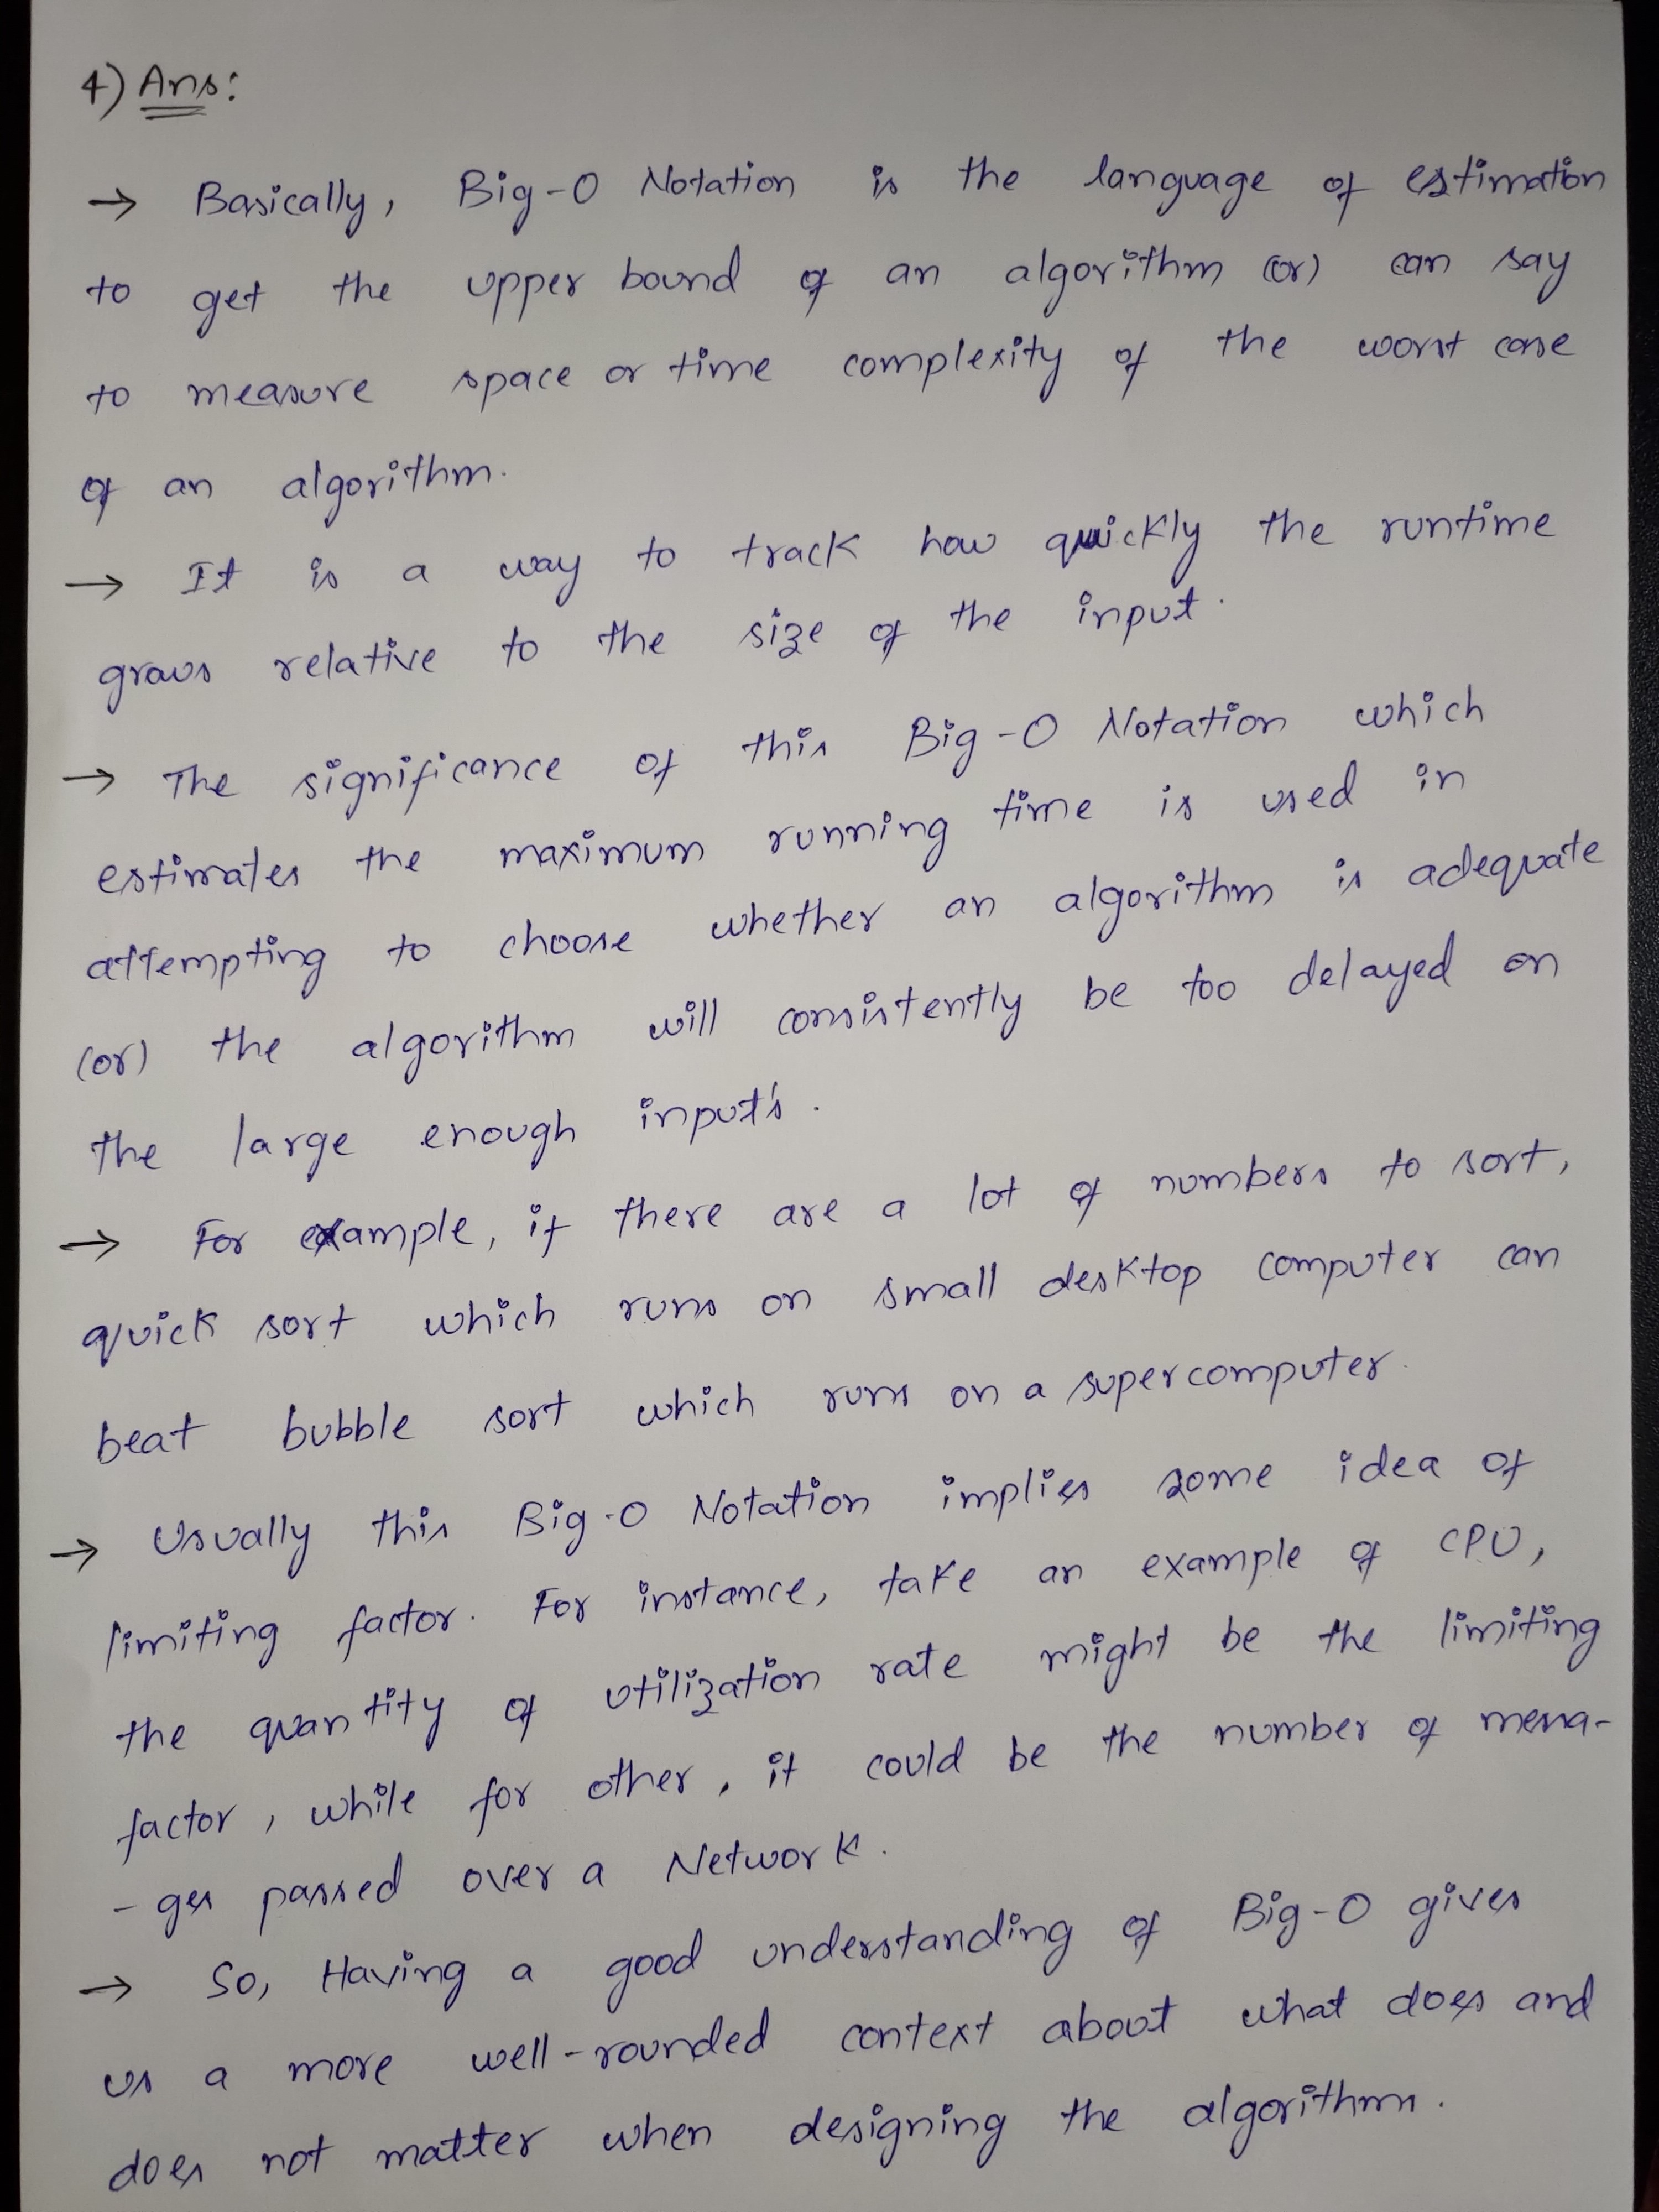 4) Ans:
→ Basically, Big-O Notation is the language of estimation
to get the upper bound of an algorithm (or) can say
to measure space or time complexity of the worst case
of an algorithm.
→ It is a way to track how quickly the runtime
grows relative to the size of the input.
→ The significance of this Big-O Notation which
estimates the maximum running time is used in
attempting to choose whether an algorithm is adequate
(or) the algorithm will consistently be too delayed on
the large enough input's.
→ For example, if there are a lot of numbers to sort,
quick sort which runs on small desktop computer can
beat bubble sort which runs on a supercomputer.
→ Usually this Big-O Notation implies some idea of
limiting factor. For instance, take an example of CPU,
the quantity of utilization rate might be the limiting
factor, while for other, it could be the number of messa-
-ges passed over a Network.
→ So, Having a good understanding of Big-O gives
us a more well-rounded context about what does and
does not matter when designing the algorithms.